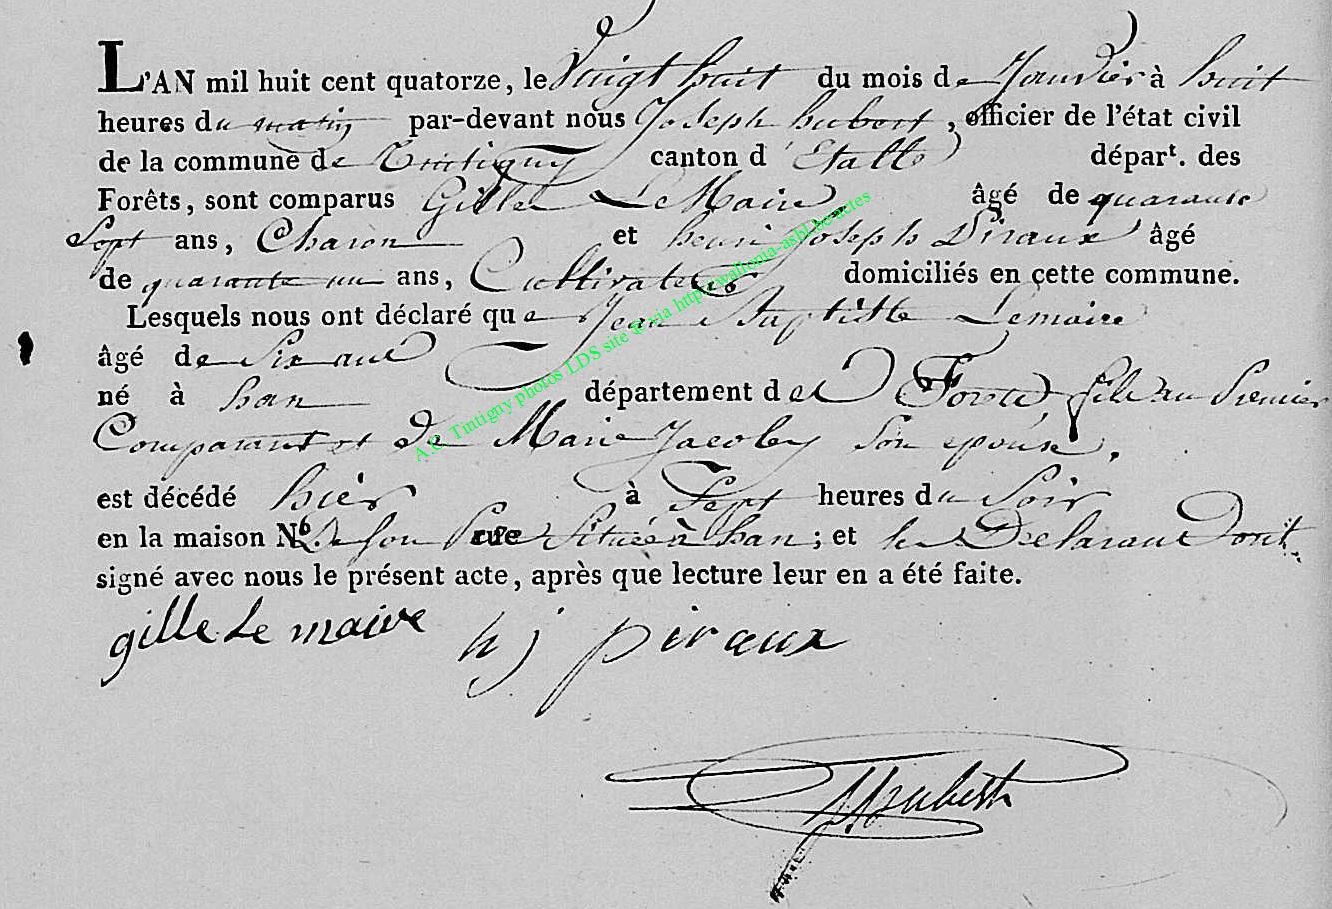 L'AN mil huit cent quatorze, le Vingt huit du mois de Janvier à huit
heures du matin par-devant nous Joseph hubert, officier de l'état civil
de la commune de Tintigny canton d'Etalle départ. des
Forêts, sont comparus Gille LeMaire âgé de quarante
Sept ans, Charon et henri Joseph Piraux âgé
de quarante un ans, Cultivateurs domiciliés en cette commune.
Lesquels nous ont déclaré que Jean Baptiste Lemaire
âgé de Six ans
né à han département des Forets, fils au Premier
Comparant et de Marie Jacoby Son epouse,
est décédé hier à Sept heures du Soir
en la maison No. de Son Pere Située à han; et les Declarant ont
signé avec nous le présent acte, après que lecture leur en a été faite.
gille Le maire h j piraux
JHubert
A.C. Tintigny photos LDS site © via http://wallonia-asbl.be/actes